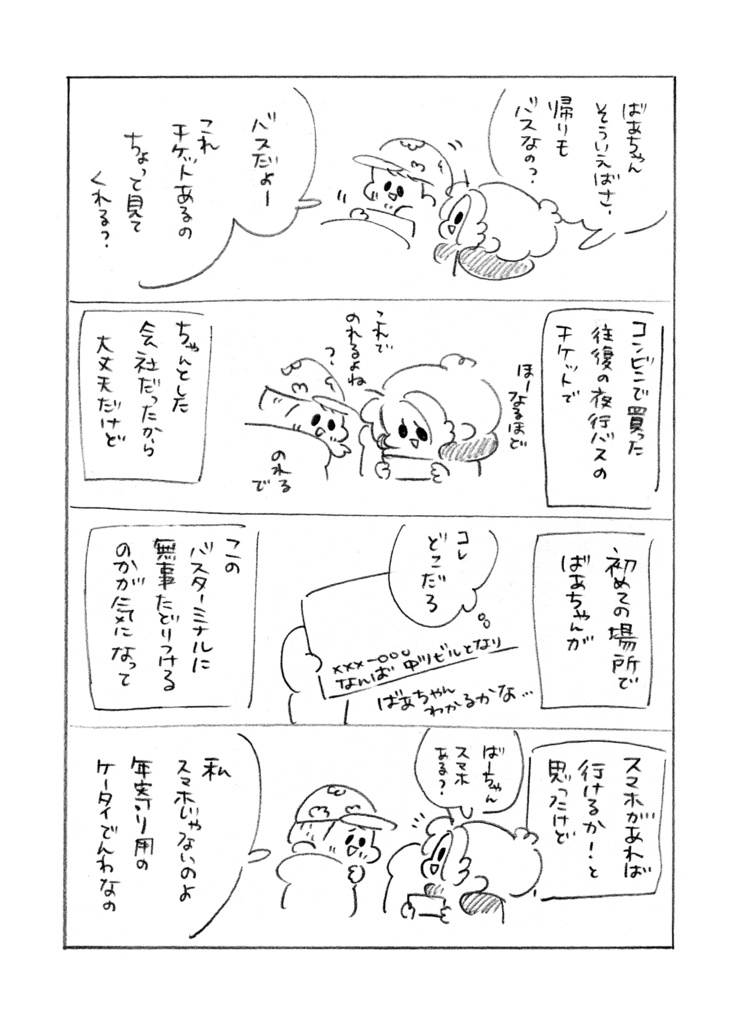 ばあちゃん
そういえばさ、
帰りも
バスなの?
バスだよー
これ
チケットあるの
ちょって見て
くれる?
コンビニで買った
往復の夜行バスの
チケットで
ほーなるほど
これで
のれるよね
?
のれる
で
ちゃんとした
会社だったから
大丈夫だけど
初めての場所で
ばあちゃんが
コレ
どこだろ
xxx-ooo
なんば 中ツビルとなり
ばあちゃん
わかるかな…
この
バスターミナルに
無事たどりつける
のかが気になって
スマホがあれば
行けるか!と
思ったけど
ばーちゃん
スマホ
ある?
私
スマホじゃないのよ
年寄り用の
ケータイでんわなの